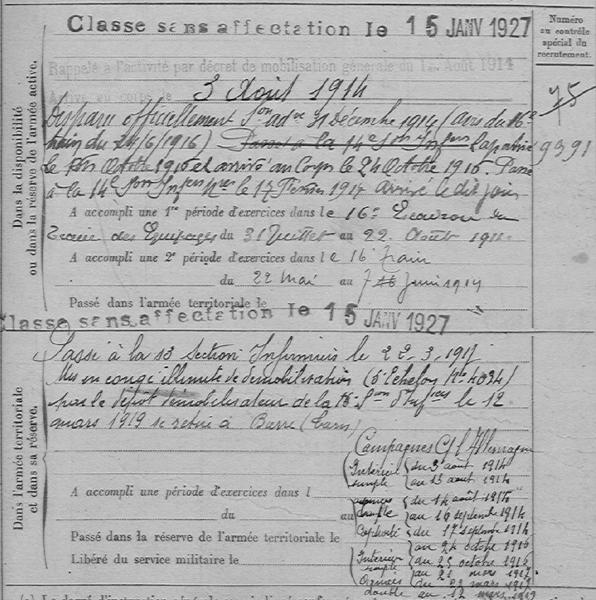 Classe sans affectation le 15 JANV 1927
Numéro
au contrôle
spécial du
recrutement.
Rappelé à l'activité par décret de mobilisation générale du 1er Août 1914
Arrivé au corps le 3 Août 1914
75
Disparu officiellement 31 Décembre 1914 (avis du 16e
train du 24/6/1916) Passé à la 14e Son Infers Rapatrié
9391
le Octobre 1916 et arrivé au Corps le 24 Octobre 1916. Passé
à la 14e Son Infers Mres le 17 Février 1917 arrivé le dit jour
A accompli une 1re période d'exercices dans le 16e Escadron du
Train des Equipages du 31 Juillet au 22 Août 1911
A accompli une 2e période d'exercices dans le 16 Train
du 22 Mai au 7 Juin 1914
Passé dans l'armée territoriale le
Classe sans affectation le 15 JANV 1927
Dans la disponibilité
ou dans la réserve de l'armée active.
Passé à la 13 Section Infirmiers le 22-3-1917
Mis en congé illimité de démobilisation (6e Echelon No 4034)
par le dépôt démobilisateur de la 16e Son d'Infres le 12
mars 1919 se retire à Barre (Tarn)
Campagnes C/ l'Allemagne
Intérieur simple du 3 août 1914
au 13 août 1914
A accompli une période d'exercices dans l
du au
Armées double du 14 août 1914
au 16 septembre 1914
Passé dans la réserve de l'armée territoriale le
Captivité du 17 septembre 1914
au 24 octobre 1916
Libéré du service militaire le
Intérieur simple du 25 octobre 1916
au 21 mars 1917
double du 22 mars 1917
au 12 mars 1919
Dans l'armée territoriale
et dans sa réserve.